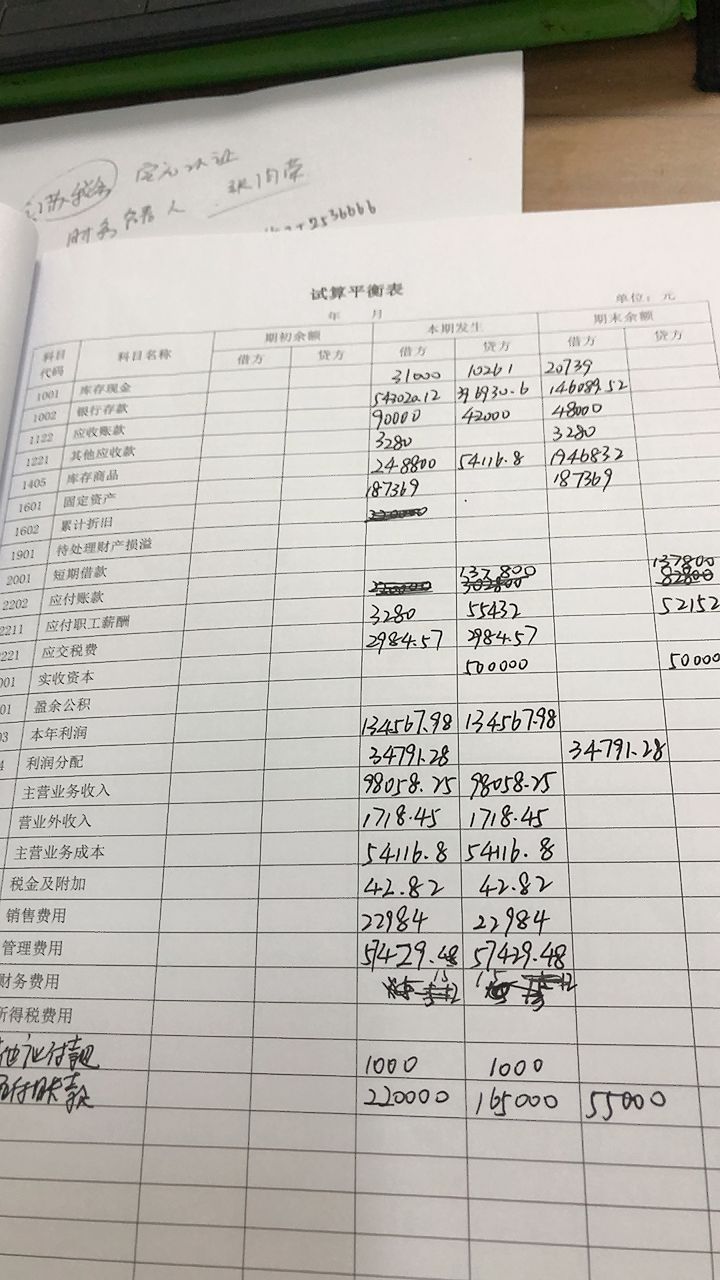 财务负责人
试算平衡表
年 月 单位：元
科目代码 科目名称 期初余额 本期发生 期末余额
借方 贷方 借方 贷方 借方 贷方
1001 库存现金 31000 10261 20739
1002 银行存款 543020.12 396930.6 146089.52
1122 应收账款 90000 42000 48000
1221 其他应收款 3280 3280
1405 库存商品 248800 54116.8 1946832
1601 固定资产 187369 187369
1602 累计折旧
1901 待处理财产损溢
2001 短期借款 137800
2202 应付账款 137800
2211 应付职工薪酬 3280 55432 52152
221 应交税费 2984.57 2984.57
001 实收资本 500000 50000
01 盈余公积
03 本年利润 134567.98 134567.98
4 利润分配 34791.28 34791.28
主营业务收入 98058.25 98058.25
营业外收入 1718.45 1718.45
主营业务成本 54116.8 54116.8
税金及附加 42.82 42.82
销售费用 22984 22984
管理费用 57429.48 57429.48
财务费用
所得税费用
他应付款 1000 1000
付账款 220000 165000 55000